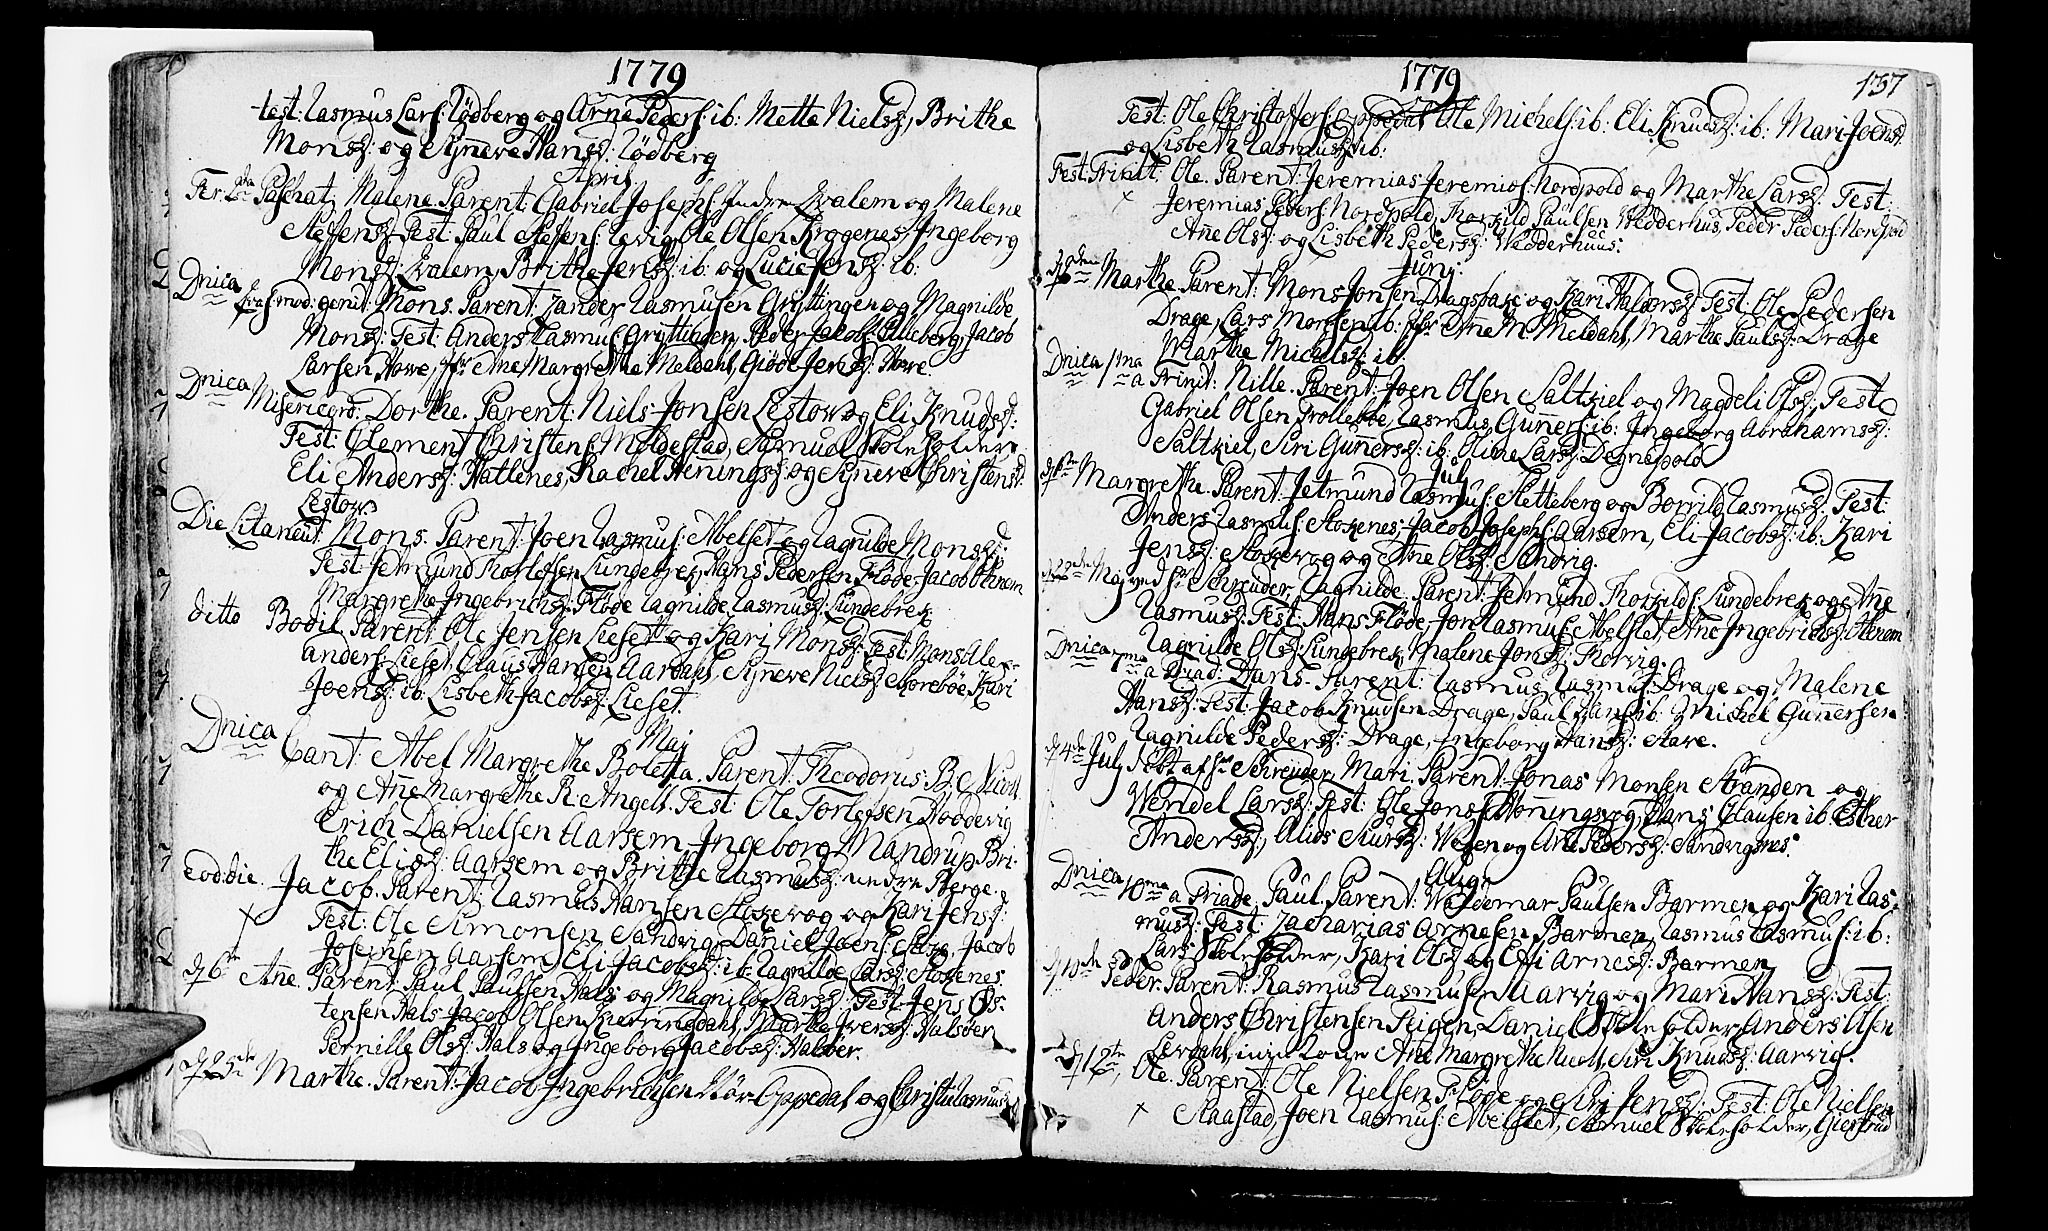 1779
test: Rasmus Lars: Rødberg og Arne Peders: ib: Mette Nielsd, Brithe
Monsd: og Synneve Hansd: Rødberg
April
Fer: 2da Paschat, Malene. Parent: Gabriel Josephs: Indre Qvalem og Malene
Steffensd: Test: Paul Steffens: Ole Olsen Kroggenes, Ingeborg
Monsd: Qvalem, Brithe Jensd: ib: og Lucie Jensd: ib:
Dnica
Qvasimod: genit: Mons. Parent: Zander Rasmusen Gryttingen og Magnilde
Monsd: Test: Anders Rasmus: Gryttingen, Peder Jacobs: Jacob
Larsen Howe, Jfr Ane Margrethe Meldahl, Giöde Jensd: Howe
Dnica
Misericord: Dorthe. Parent: Niels Jonsen Lestow og Eli Knudsd:
Test: Clement Christens: Moldestad, Samuel Skoleholder
Eli Andersd: Hatlenes, Rachel Henningsd: og Synneve Christensd:
Lestow.
Die Litaneut. Mons. Parent: Joen Rasmus: Abelset og Ragnilde Monsd:
Test: Jetmund Lundebrek, Hans Pedersen Flöde, Jacob
Margrethe Ingebrichsd: Flöde Ragnilde Rasmusd: Lundebrek
ditto Bodil. Parent: Ole Jensen Lieset og Kari Monsd: Test: Mons Alex-
anders: Lieset, Claus Aardahl, Synneve Nielsd: Kari
Joensd: ib: Lisbeth Jacobsd: Lieset.
Maj
Dnica Cant: Abel Margrethe Boletta. Parent: Theodorus B:
og Ane Margrethe R: Angell. Test: Ole Torlefsen
Erich Danielsen Aarsem, Ingeborg Mandrup, Bri-
the Eliæd: Aarsem og Brithe Rasmusd: under Berge.
eod: die. Jacob. Parent: Rasmus Hansen Stokevog og Kari Jensd:
Test: Ole Simonsen Sandvig, Daniel Joens: Jacob
Josephsen Aarsem, Eli Jacobsd: ib: Ragnilde Larsd: Stokenes
d 6te Ane. Parent: Paul Paulsen Hals og Magnilde Larsd: Test: Jens Os-
tensen Hals Jacob Olsen Kierringdahl, Marthe Iversd: Halsöer
Pernille Olsd: Hals og Ingeborg Jacobsd: Halsöer.
d 25de Marthe. Parent: Jacob Ingebrichsen Stor-Oppedal og Christi Rasmusd:
1779
137
Test: Ole Christoffers: Oppedal Ole Michels: ib: Eli Knudsd: ib: Mari Joensd:
og Lisbeth Rasmusd: ib:
Fest: Trinit: Ole. Parent: Jeremias Jeremios: Nordpold og Marthe Larsd: Test:
Jeremias Peders: Nordpold, Thorkild Paulsen Wedderhus, Peder Peders: Nordpold
Ane Olsd: og Lisbeth Pedersd: Wedderhuus:
Junj:
Marthe. Parent: Mons Jonsen Dragsbake og Kari Haldorsd: Test: Ole Pedersen
Drage, Lars Monsen ib: Jfr Ane M: Meldahl, Marthe Paulsd: Drage
Marthe Michelsd: ib:
Dnica 1ma
a Trinit: Nille. Parent: Joen Olsen Saltkiel og Magdeli Olsd: Test
Gabriel Olsen Trollebøe, Rasmus Gunners: ib: Ingeborg Abrahamsd:
Saltkiel, Siri Gunnersd: ib: Oline Larsd: Degnepold
Julj
Margrethe. Parent: Jetmund Rasmus: Sletteberg og Borrild Rasmusd: Test:
Anders Rasmus: Stokenes, Jacob Josephs: Aarsem, Eli Jacobsd: ib: Kari
Jensd: Stokevog og Ane Olsd: Sandvig.
Maj ved Hr Schreuder, Ragnilde. Parent: Jetmund Thorkilds: Lundebrek og Ane
Rasmusd: Test: Hans Flöde, Jon Rasmus: Abelset, Ane Ingebrichsd:
Ragnilde Olsd: Lundebrek, Malene Jonsd: Torvig.
Dnica 7ma
a Triad: Hans. Parent: Rasmus Rasmus: Drage og Malene
Hansd: Test: Jacob Knudsen Drage, Paul Hans: ib: Michel Gunnersen
Ragnilde Pedersd: Drage, Ingeborg Hansd: Aare.
d 4de Julj döbt af Hr Schreuder, Mari. Parent: Jonas Monsen Stranden og
Wendel Larsd: Test: Ole Jons: Honingsvog, Hans Clausen ib: Esther
Andersd:, Alios Siursd: Weyen og Ane Pedersd: Sandvigsnes.
Aug:
Dnica 10ma a Triade, Paul. Parent: Woldemar Paulsen Barmen og Kari Ras-
musd: Test: Zacharias Arnesen Barmen, Rasmus Rasmus: ib:
Lars Skoleholder, Kari Olsd: og Eli Arnesd: Barmen
d 10de Peder. Parent: Rasmus Rasmusen Aarvig og Mari Hansd: Test:
Anders Christensen Leigen, Daniel Skoleholder, Anders Olsen
Lerdahl, min Ane Margrethe, Siri Knudsd: Aarvig.
d 12te, Ole. Parent: Ole Nielsen Flöde og Siri Jensd: Test: Ole Nielsen
Staastad, Joen Rasmus: Abelset, Samuel Skoleholder, Giertrud